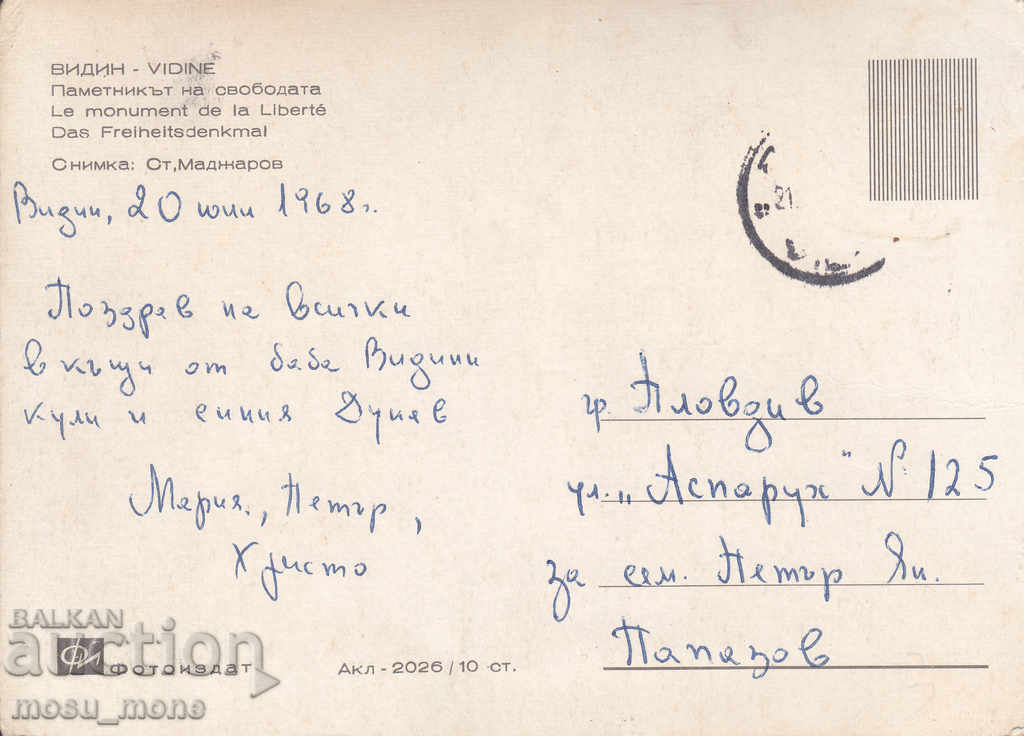 ВИДИН - VIDINE
Паметникът на свободата
Le monument de la Liberté
Das Freiheitsdenkmal
Снимка: Ст,Маджаров
Видин, 20 юни 1968 г.
Поздрав на всички
в къщи от баба Видини
кули и синия Дунав
Мария, Петър,
Христо
21.
гр. Пловдив
ул. „Аспарух" N 125
за сем. Петър Ян.
Папазов
Фотоиздат
Акл-2026/10 ст.
BALKAN
auction
mosu_mone